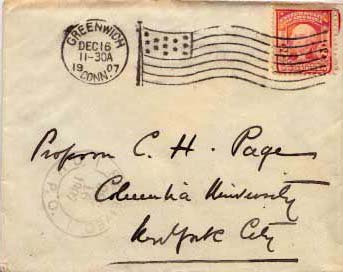 GREENWICH
DEC 16
11-30A
1907
CONN.
Professor C. H. Page
Columbia University
New York City